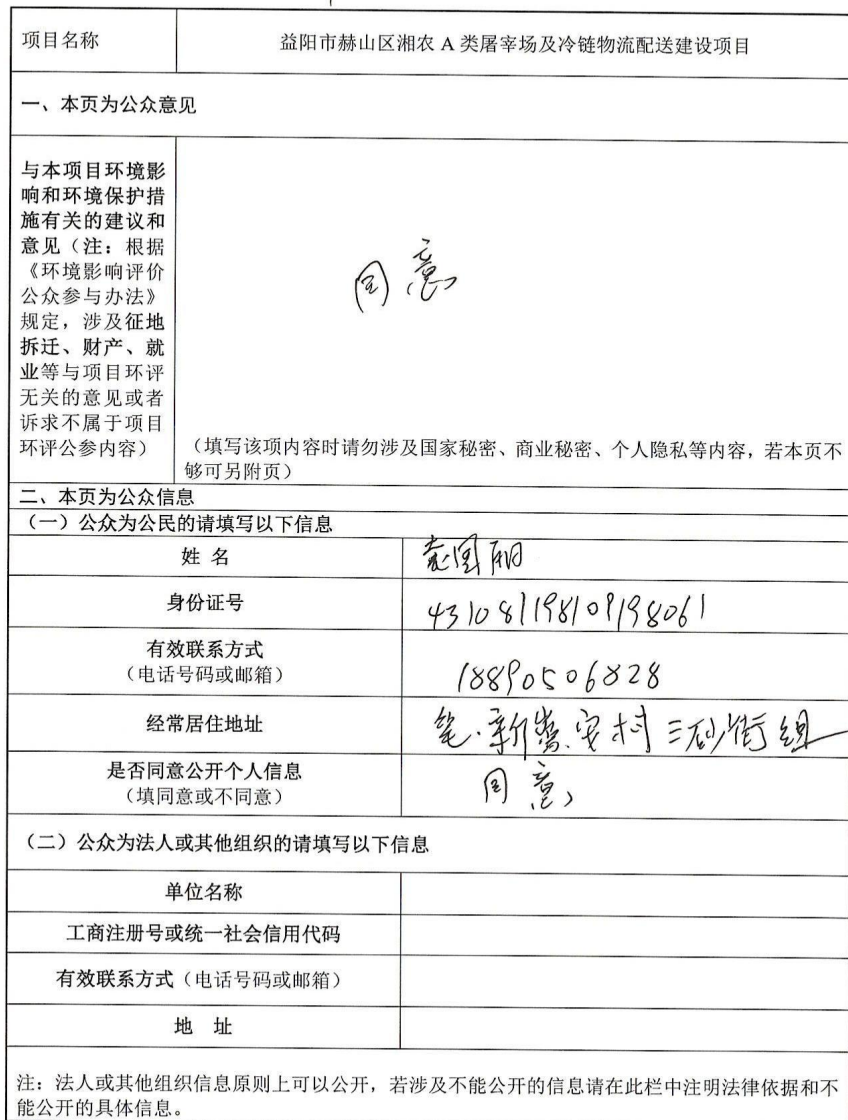 项目名称 益阳市赫山区湘农 A 类屠宰场及冷链物流配送建设项目
一、本页为公众意见
与本项目环境影
响和环境保护措
施有关的建议和
意见（注：根据
《环境影响评价
公众参与办法》
规定，涉及征地
拆迁、财产、就
业等与项目环评
无关的意见或者
诉求不属于项目
环评公参内容）
同意
（填写该项内容时请勿涉及国家秘密、商业秘密、个人隐私等内容，若本页不
够可另附页）
二、本页为公众信息
（一）公众为公民的请填写以下信息
姓 名
身份证号 431081198109198061
有效联系方式
（电话号码或邮箱） 18890506828
经常居住地址 村三 组
是否同意公开个人信息
（填同意或不同意） 同意
（二）公众为法人或其他组织的请填写以下信息
单位名称
工商注册号或统一社会信用代码
有效联系方式（电话号码或邮箱）
地 址
注：法人或其他组织信息原则上可以公开，若涉及不能公开的信息请在此栏中注明法律依据和不
能公开的具体信息。